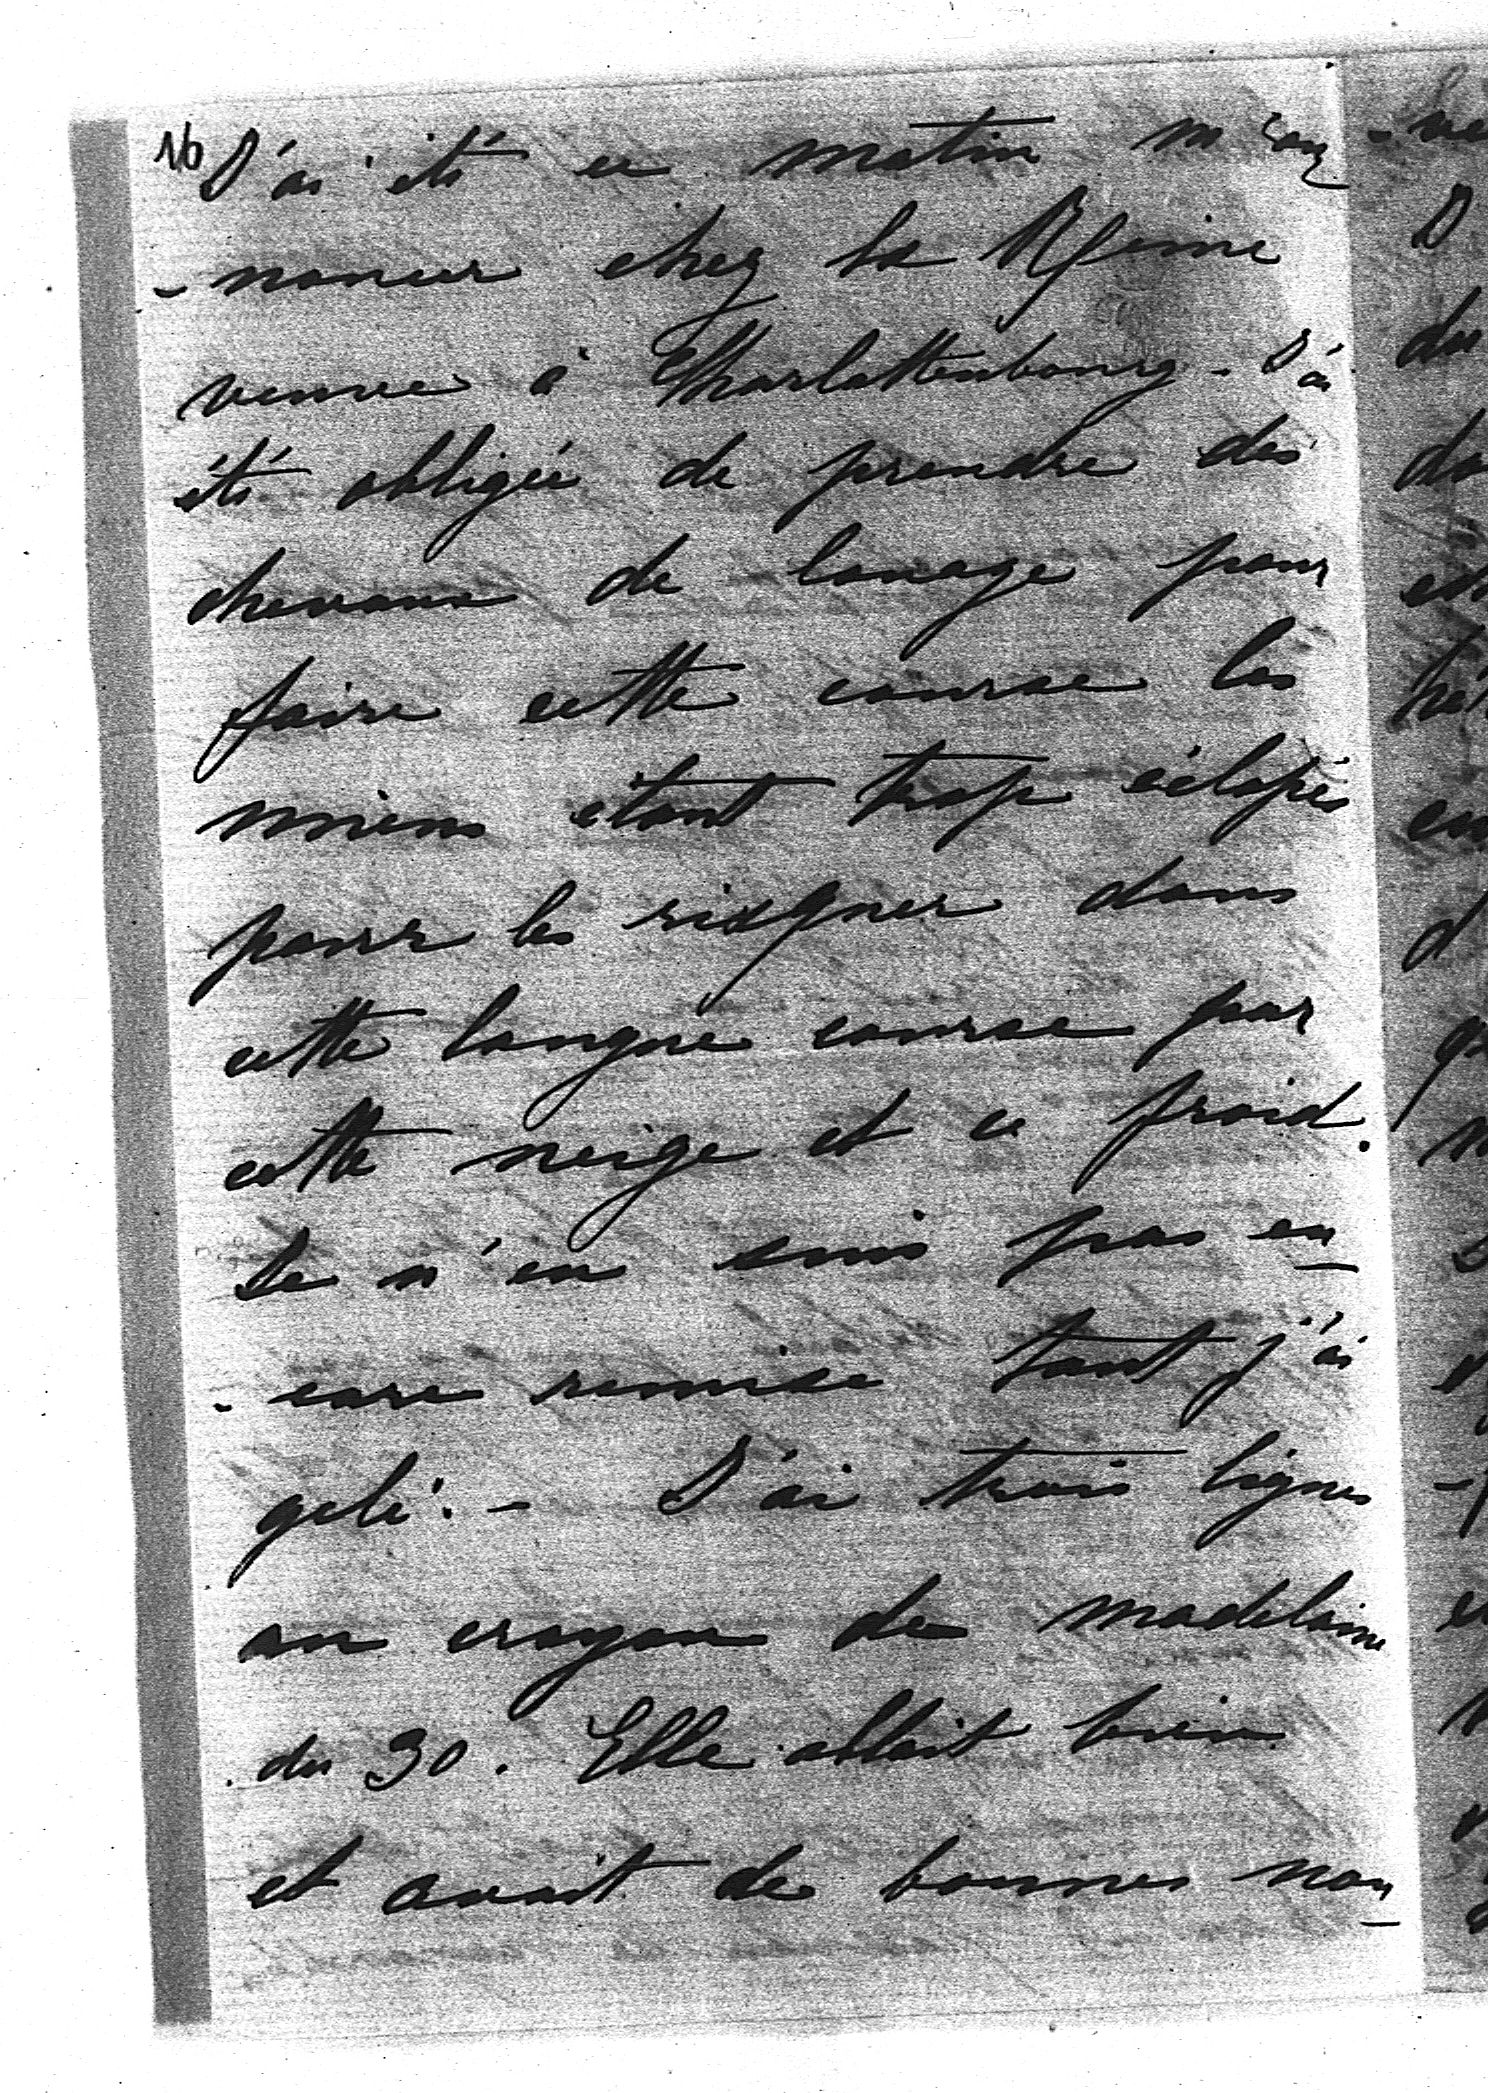 16 J'ai été ce matin m'an
-noncer chez la Reine
veuve à Charlottenbourg - J'ai
été obligée de prendre des
chevaux de louage pour
faire cette course les
miens étant trop éclopés
pour les risquer dans
cette longue course par
cette neige et ce froid.
Je n'en suis pas en
-core remise tant j'ai
gelé. - J'ai trois lignes
au crayon de Madelaine
du 30. Elle allait bien
et avait de bonnes nou